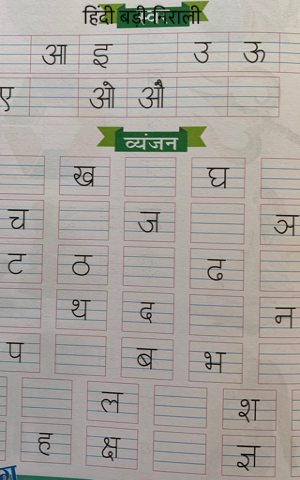 हिंदी बड़ी निराली
आ इ उ ऊ
ए ओ औ
व्यंजन
ख घ
च ज ञ
ट ठ ढ
थ द न
प ब भ
ल श
ह क्ष ज्ञ